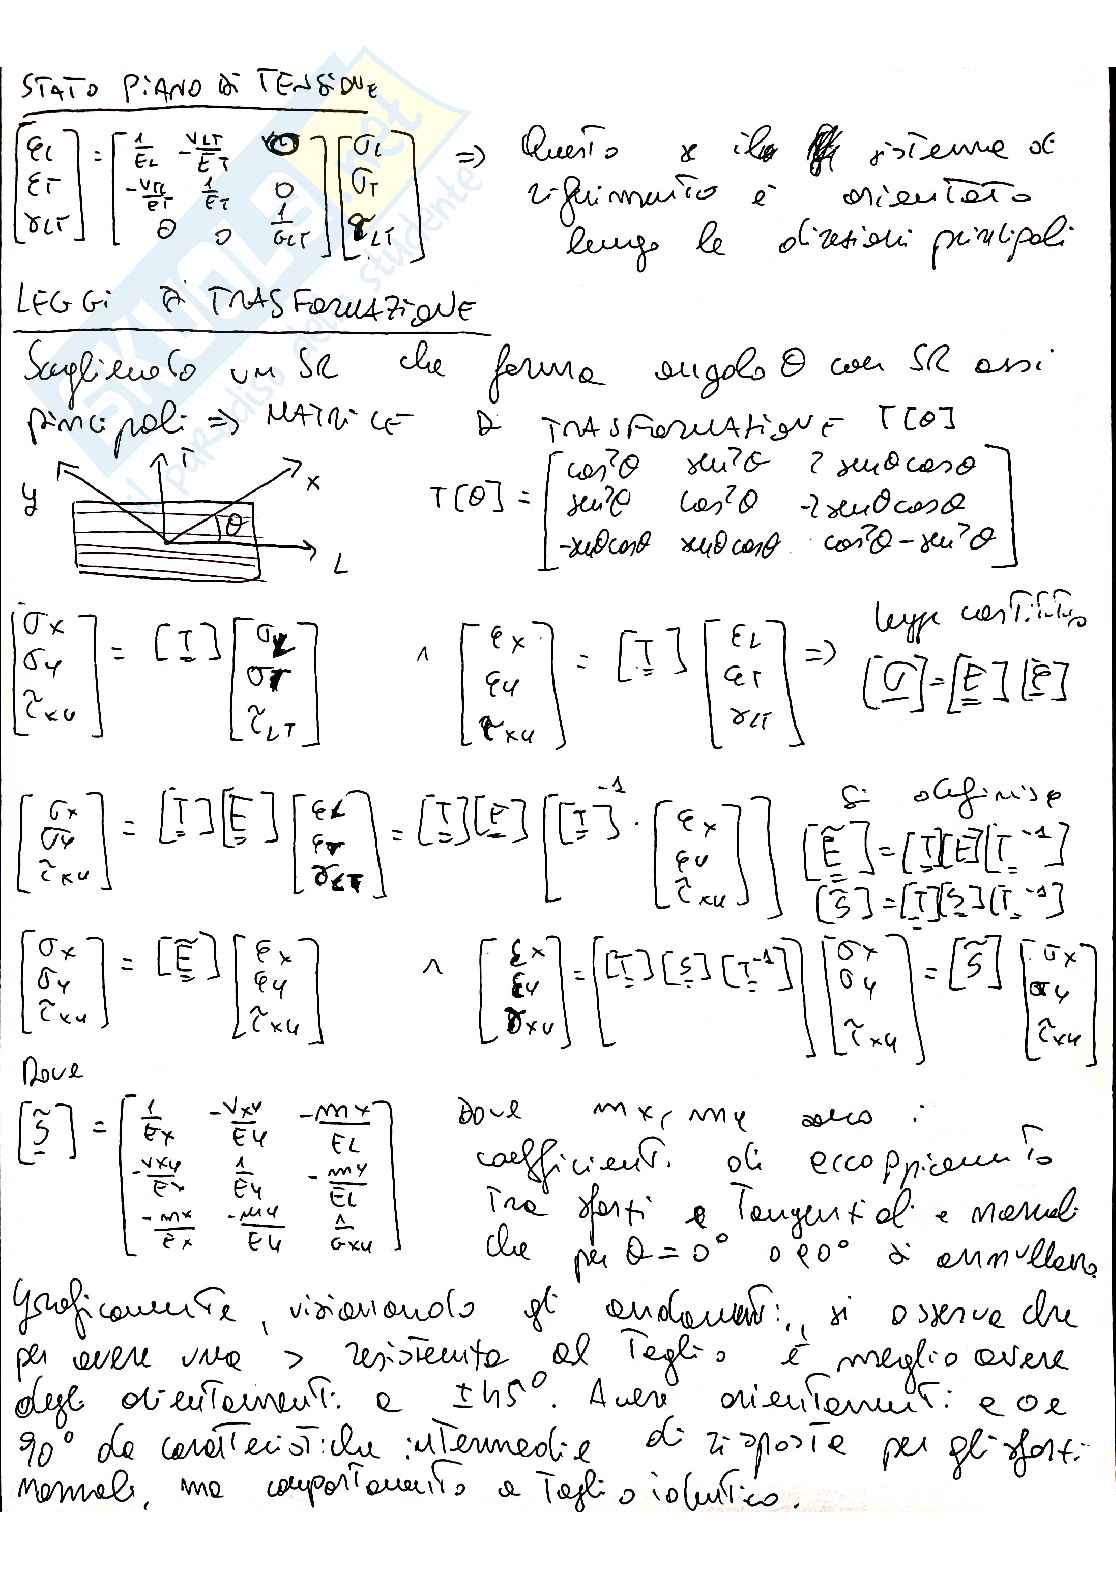 STATO PIANO DI TENSIONE
[εL εT γLT] = [1/EL -νLT/ET 0; -νTL/ET 1/ET 0; 0 0 1/GLT] [σL σT τLT] ⇒ Questo se il sistema di
riferimento è orientato
lungo le direzioni principali
LEGGI DI TRASFORMAZIONE
Scegliendo un SR che forma angolo θ con SR assi
principali ⇒ MATRICE DI TRASFORMAZIONE T[θ]
y T x θ L
T[θ] = [cos²θ sen²θ 2senθcosθ; sen²θ cos²θ -2senθcosθ; -senθcosθ senθcosθ cos²θ-sen²θ]
[σx σy τxy] = [T] [σL σT τLT] ∧ [εx εy γxy] = [T] [εL εT γLT] ⇒ legge costitutiva
[σ]=[E][ε]
[σx σy τxy] = [T][E] [εL εT γLT] = [T][E] [[T]⁻¹ · [εx εy τxy]] Si definisce
[Ẽ]=[T][E][T⁻¹]
[S̃]=[T][S][T⁻¹]
[σx σy τxy] = [Ẽ] [εx εy τxy] ∧ [εx εy γxy] = [[T][S][T⁻¹]] [σx σy τxy] = [S̃] [σx σy τxy]
Dove
[S̃] = [1/Ex -νxy/Ey -mx/EL; -νxy/Ex 1/Ey -my/EL; -mx/Ex -my/Ey 1/Gxy] Dove mx, my sono i
coefficienti di accoppiamento
tra sforzi tangenziali e normali
che per θ=0° o 90° si annullano
Graficamente, visionando gli andamenti, si osserva che
per avere una > resistenza al taglio è meglio avere
degli orientamenti a ±45°. Avere orientamenti a 0 e
90° da caratteristiche intermedie di risposta per gli sforzi
normali, ma comportamento a taglio identico.
SKUOLA.net
il paradiso dello studente